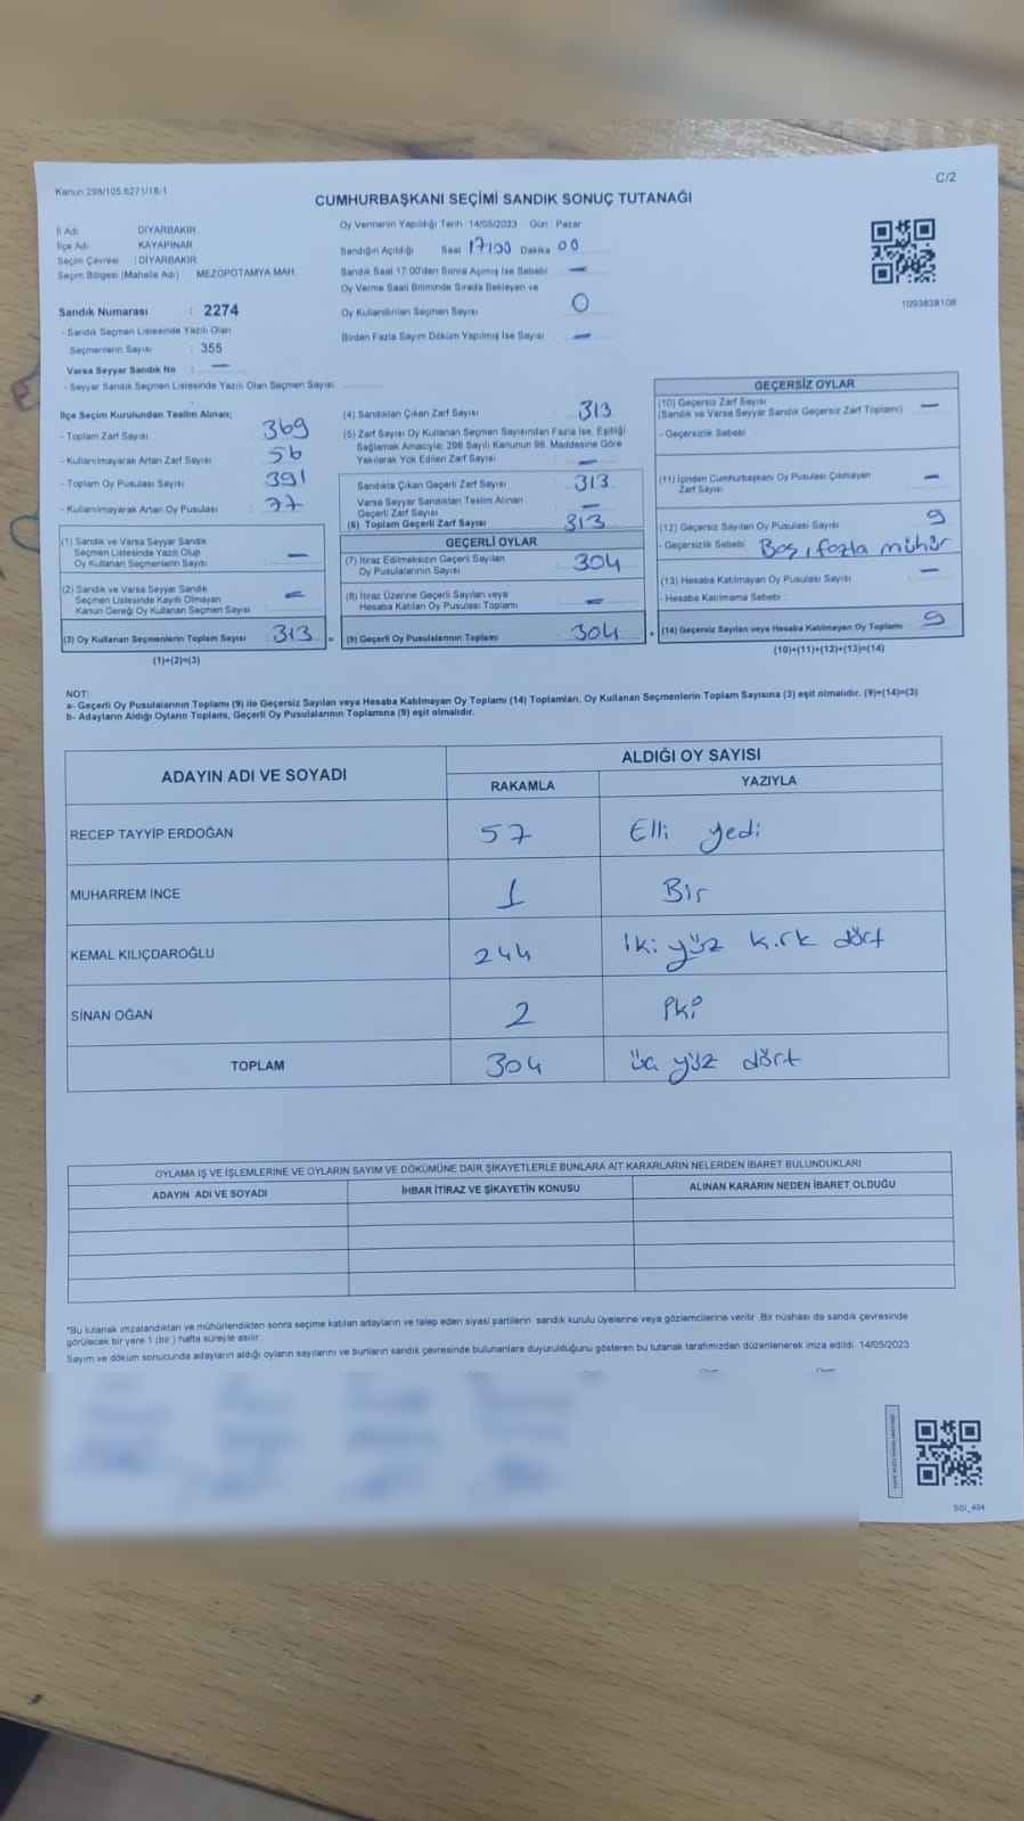 Kanun 298/105.6271/16.1
C/2
CUMHURBAŞKANI SEÇİMİ SANDIK SONUÇ TUTANAĞI
İl Adı DİYARBAKIR
İlçe Adı KAYAPINAR
Seçim Çevresi : DİYARBAKIR
Seçim Bölgesi (Mahalle Adı) MEZOPOTAMYA MAH.
Sandık Numarası : 2274
- Sandık Seçmen Listesinde Yazılı Olan
Seçmenlerin Sayısı : 355
Varsa Seyyar Sandık No : —
- Seyyar Sandık Seçmen Listesinde Yazılı Olan Seçmen Sayısı
Oy Vermenin Yapıldığı Tarih 14/05/2023 Gün : Pazar
Sandığın Açıldığı Saat 17:00 Dakika 00
Sandık Saat 17:00'den Sonra Açılmış İse Sebebi —
Oy Verme Saati Bitiminde Sırada Bekleyen ve
Oy Kullandırılan Seçmen Sayısı 0
Birden Fazla Sayım Döküm Yapılmış İse Sayısı —
1093838108
İlçe Seçim Kurulundan Teslim Alınan;
- Toplam Zarf Sayısı 369
- Kullanılmayarak Artan Zarf Sayısı 56
- Toplam Oy Pusulası Sayısı 391
- Kullanılmayarak Artan Oy Pusulası 77
(1) Sandık ve Varsa Seyyar Sandık
Seçmen Listesinde Yazılı Olup
Oy Kullanan Seçmenlerin Sayısı —
(2) Sandık ve Varsa Seyyar Sandık
Seçmen Listesinde Kayıtlı Olmayan
Kanun Gereği Oy Kullanan Seçmen Sayısı —
(3) Oy Kullanan Seçmenlerin Toplam Sayısı 313
(1)+(2)=(3)
(4) Sandıktan Çıkan Zarf Sayısı 313
(5) Zarf Sayısı Oy Kullanan Seçmen Sayısından Fazla İse, Eşitliği
Sağlamak Amacıyla; 298 Sayılı Kanunun 98. Maddesine Göre
Yakılarak Yok Edilen Zarf Sayısı —
Sandıkta Çıkan Geçerli Zarf Sayısı 313
Varsa Seyyar Sandıktan Teslim Alınan
Geçerli Zarf Sayısı —
(6) Toplam Geçerli Zarf Sayısı 313
GEÇERLİ OYLAR
(7) İtiraz Edilmeksizin Geçerli Sayılan
Oy Pusulalarının Sayısı 304
(8) İtiraz Üzerine Geçerli Sayılan veya
Hesaba Katılan Oy Pusulası Toplamı —
(9) Geçerli Oy Pusulalarının Toplamı 304
GEÇERSİZ OYLAR
(10) Geçersiz Zarf Sayısı
(Sandık ve Varsa Seyyar Sandık Geçersiz Zarf Toplamı) —
- Geçersizlik Sebebi
(11) İçinden Cumhurbaşkanı Oy Pusulası Çıkmayan
Zarf Sayısı —
(12) Geçersiz Sayılan Oy Pusulası Sayısı 9
- Geçersizlik Sebebi Boş, fazla mühür
(13) Hesaba Katılmayan Oy Pusulası Sayısı —
- Hesaba Katılmama Sebebi
(14) Geçersiz Sayılan veya Hesaba Katılmayan Oy Toplamı 9
(10)+(11)+(12)+(13)=(14)
NOT:
a- Geçerli Oy Pusulaları Toplamı (9) ile Geçersiz Sayılan veya Hesaba Katılmayan Oy Toplamı (14) Toplamları, Oy Kullanan Seçmenlerin Toplam Sayısına (3) eşit olmalıdır. (9)+(14)=(3)
b- Adayların Aldığı Oyların Toplamı, Geçerli Oy Pusulalarının Toplamına (9) eşit olmalıdır.
ADAYIN ADI VE SOYADI ALDIĞI OY SAYISI
RAKAMLA YAZIYLA
RECEP TAYYİP ERDOĞAN 57 Elli yedi
MUHARREM İNCE 1 Bir
KEMAL KILIÇDAROĞLU 244 iki yüz kırk dört
SİNAN OĞAN 2 İki
TOPLAM 304 üç yüz dört
OYLAMA İŞ VE İŞLEMLERİNE VE OYLARIN SAYIM VE DÖKÜMÜNE DAİR ŞİKAYETLERLE BUNLARA AİT KARARLARIN NELERDEN İBARET BULUNDUKLARI
ADAYIN ADI VE SOYADI İHBAR İTİRAZ VE ŞİKAYETİN KONUSU ALINAN KARARIN NEDEN İBARET OLDUĞU
*Bu tutanak imzalandıktan ve mühürlendikten sonra seçime katılan adayların ve talep eden siyasi partilerin sandık kurulu üyelerine veya gözlemcilerine verilir. Bir nüshası da sandık çevresinde
görülecek bir yere 1 (bir) hafta süreyle asılır.
Sayım ve döküm sonucunda adayların aldığı oyların sayılarını ve bunların sandık çevresinde bulunanlara duyurulduğunu gösteren bu tutanak tarafımızdan düzenlenerek imza edildi. 14/05/2023